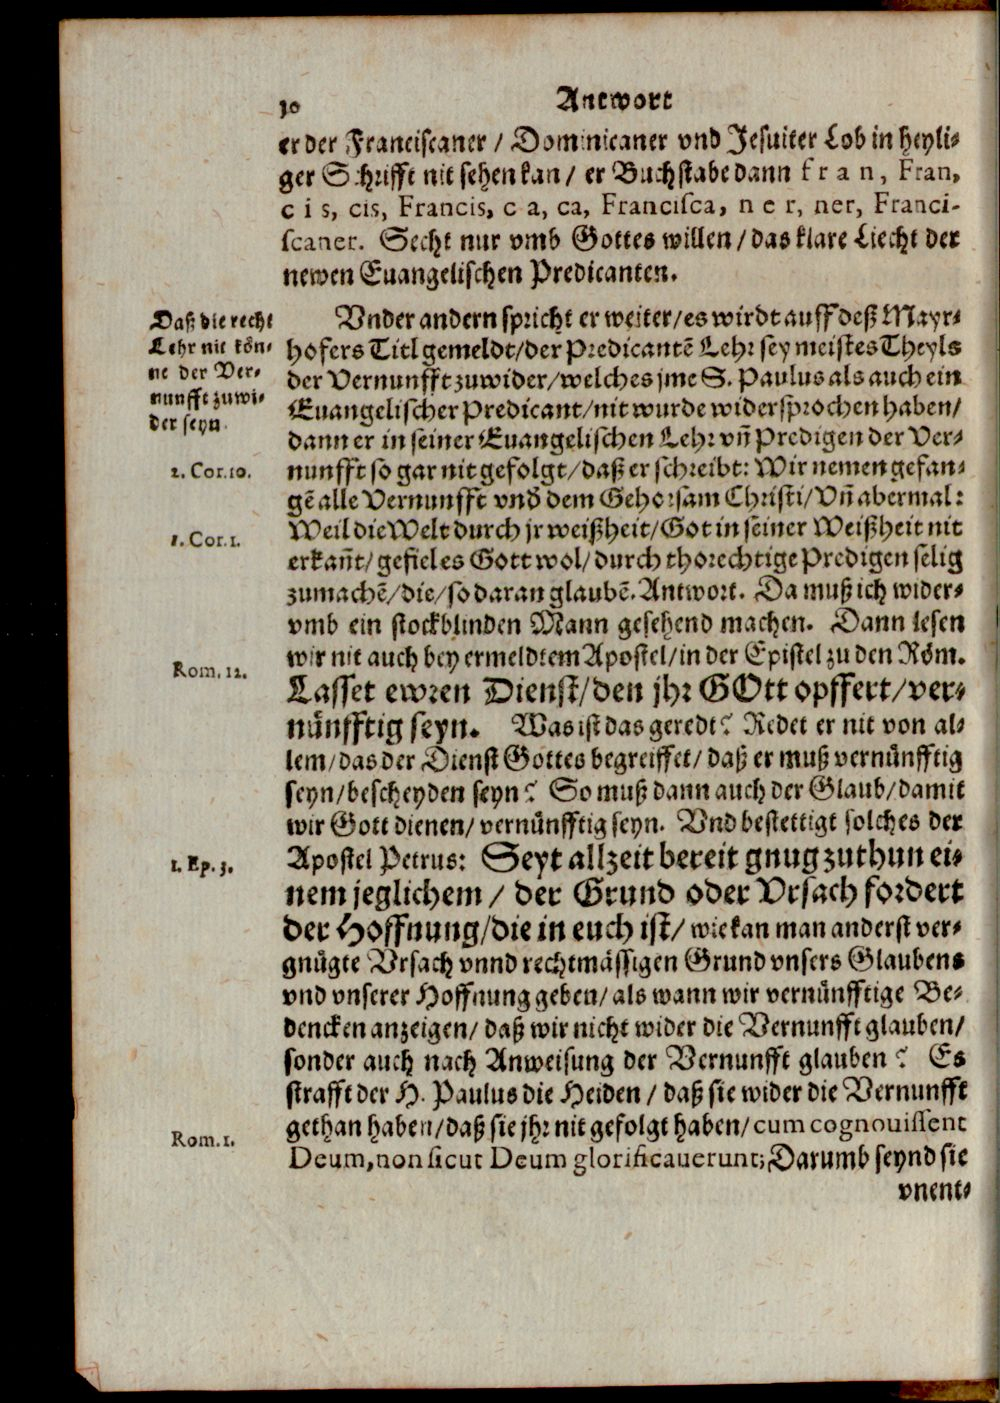 30 Antwort
er der Franciscaner / Dominicaner vnd Jesuiter Lob in heyli⸗
ger Schrifft nit sehen kan / er Buchstabe dann f r a n, Fran,
c i s, cis, Francis, c a, ca, Francisca, n e r, ner, Franci-
scaner. Secht nur vmb Gottes willen / das klare Liecht der
newen Euangelischen Predicanten.
Daß die recht
Lehr nit kön⸗
ne der Ver⸗
nunfft zuwi⸗
der seyn.
Vnder andern spricht er weiter / es wirdt auff deß Mayr⸗
hofers Titl gemeldt / der Predicantē Lehr sey meistes Theyls
der Vernunfft zuwider / welches jme S. Paulus als auch ein
Euangelischer Predicant / nit wurde widersprochen haben /
dann er in seiner Euangelischen Lehr vñ Predigen der Ver⸗
2. Cor. 10.
nunfft so gar nit gefolgt / daß er schreibt: Wir nemen gefan⸗
gē alle Vernunfft vnd dem Gehorsam Christi / Vñ abermal:
1. Cor. 1.
Weil die Welt durch jr weißheit / Got in seiner Weißheit nit
erkañt / gefiel es Gott wol / durch thorechtige Predigen selig
zumachē / die / so daran glaubē. Antwort. Da muß ich wider⸗
vmb ein stockblinden Mann gesehend machen. Dann lesen
wir nit auch bey ermeldtem Apostel / in der Epistel zu den Röm.
Rom. 12.
Lasset ewren Dienst / den jhr GOtt opffert / ver⸗
nünfftig seyn. Was ist das geredt? Redet er nit von al⸗
lem / das der Dienst Gottes begreiffet / daß er muß vernünfftig
seyn / bescheyden seyn? So muß dann auch der Glaub / damit
wir Gott dienen / vernünfftig seyn. Vnd bestettigt solches der
1. Ep. 3.
Apostel Petrus: Seyt allzeit bereit gnug zuthun ei⸗
nem jeglichem / der Grund oder Vrsach fordert
der Hoffnung / die in euch ist / wie kan man anderst ver⸗
gnügte Vrsach vnnd rechtmässigen Grund vnsers Glaubens
vnd vnserer Hoffnung geben / als wann wir vernünfftige Be⸗
dencken anzeigen / daß wir nicht wider die Vernunfft glauben /
sonder auch nach Anweisung der Vernunfft glauben? Es
strafft der H. Paulus die Heiden / daß sie wider die Vernunfft
gethan haben / daß sie jhr nit gefolgt haben / cum cognouissent
Rom. 1.
Deum, non sicut Deum glorificauerunt; Darumb seynd sie
vnent⸗